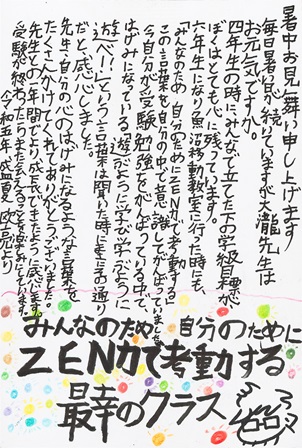 暑中お見舞い申し上げます
毎日暑い日が続いていますが大瀧先生は
お元気ですか。
四年生の時に、みんなで立てた下の学級目標が、
ぼくはとても心に残っています。
六年生になり魚沼移動教室に行った時にも、
「みんなのため 自分のためにZEN力で考動する」
この言葉を自分の中で意識してがんばっていました。
今自分が受験勉強をがんばっている中で、
はげみになっている「遊ぶように学び、学ぶように
遊べ!」という言葉は聞いた時にまさその通り
だと、感心しました。
先生、自分の心のはげみになるような言葉を
たくさんかけてくれてありがとうございました。
先生との一年間でより成長できたように感じます。
受験が終わったらまた会えることを楽しみにしています。
令和五年 盛夏
みんなのため 自分のために
ZEN力で考動する
最幸のクラス